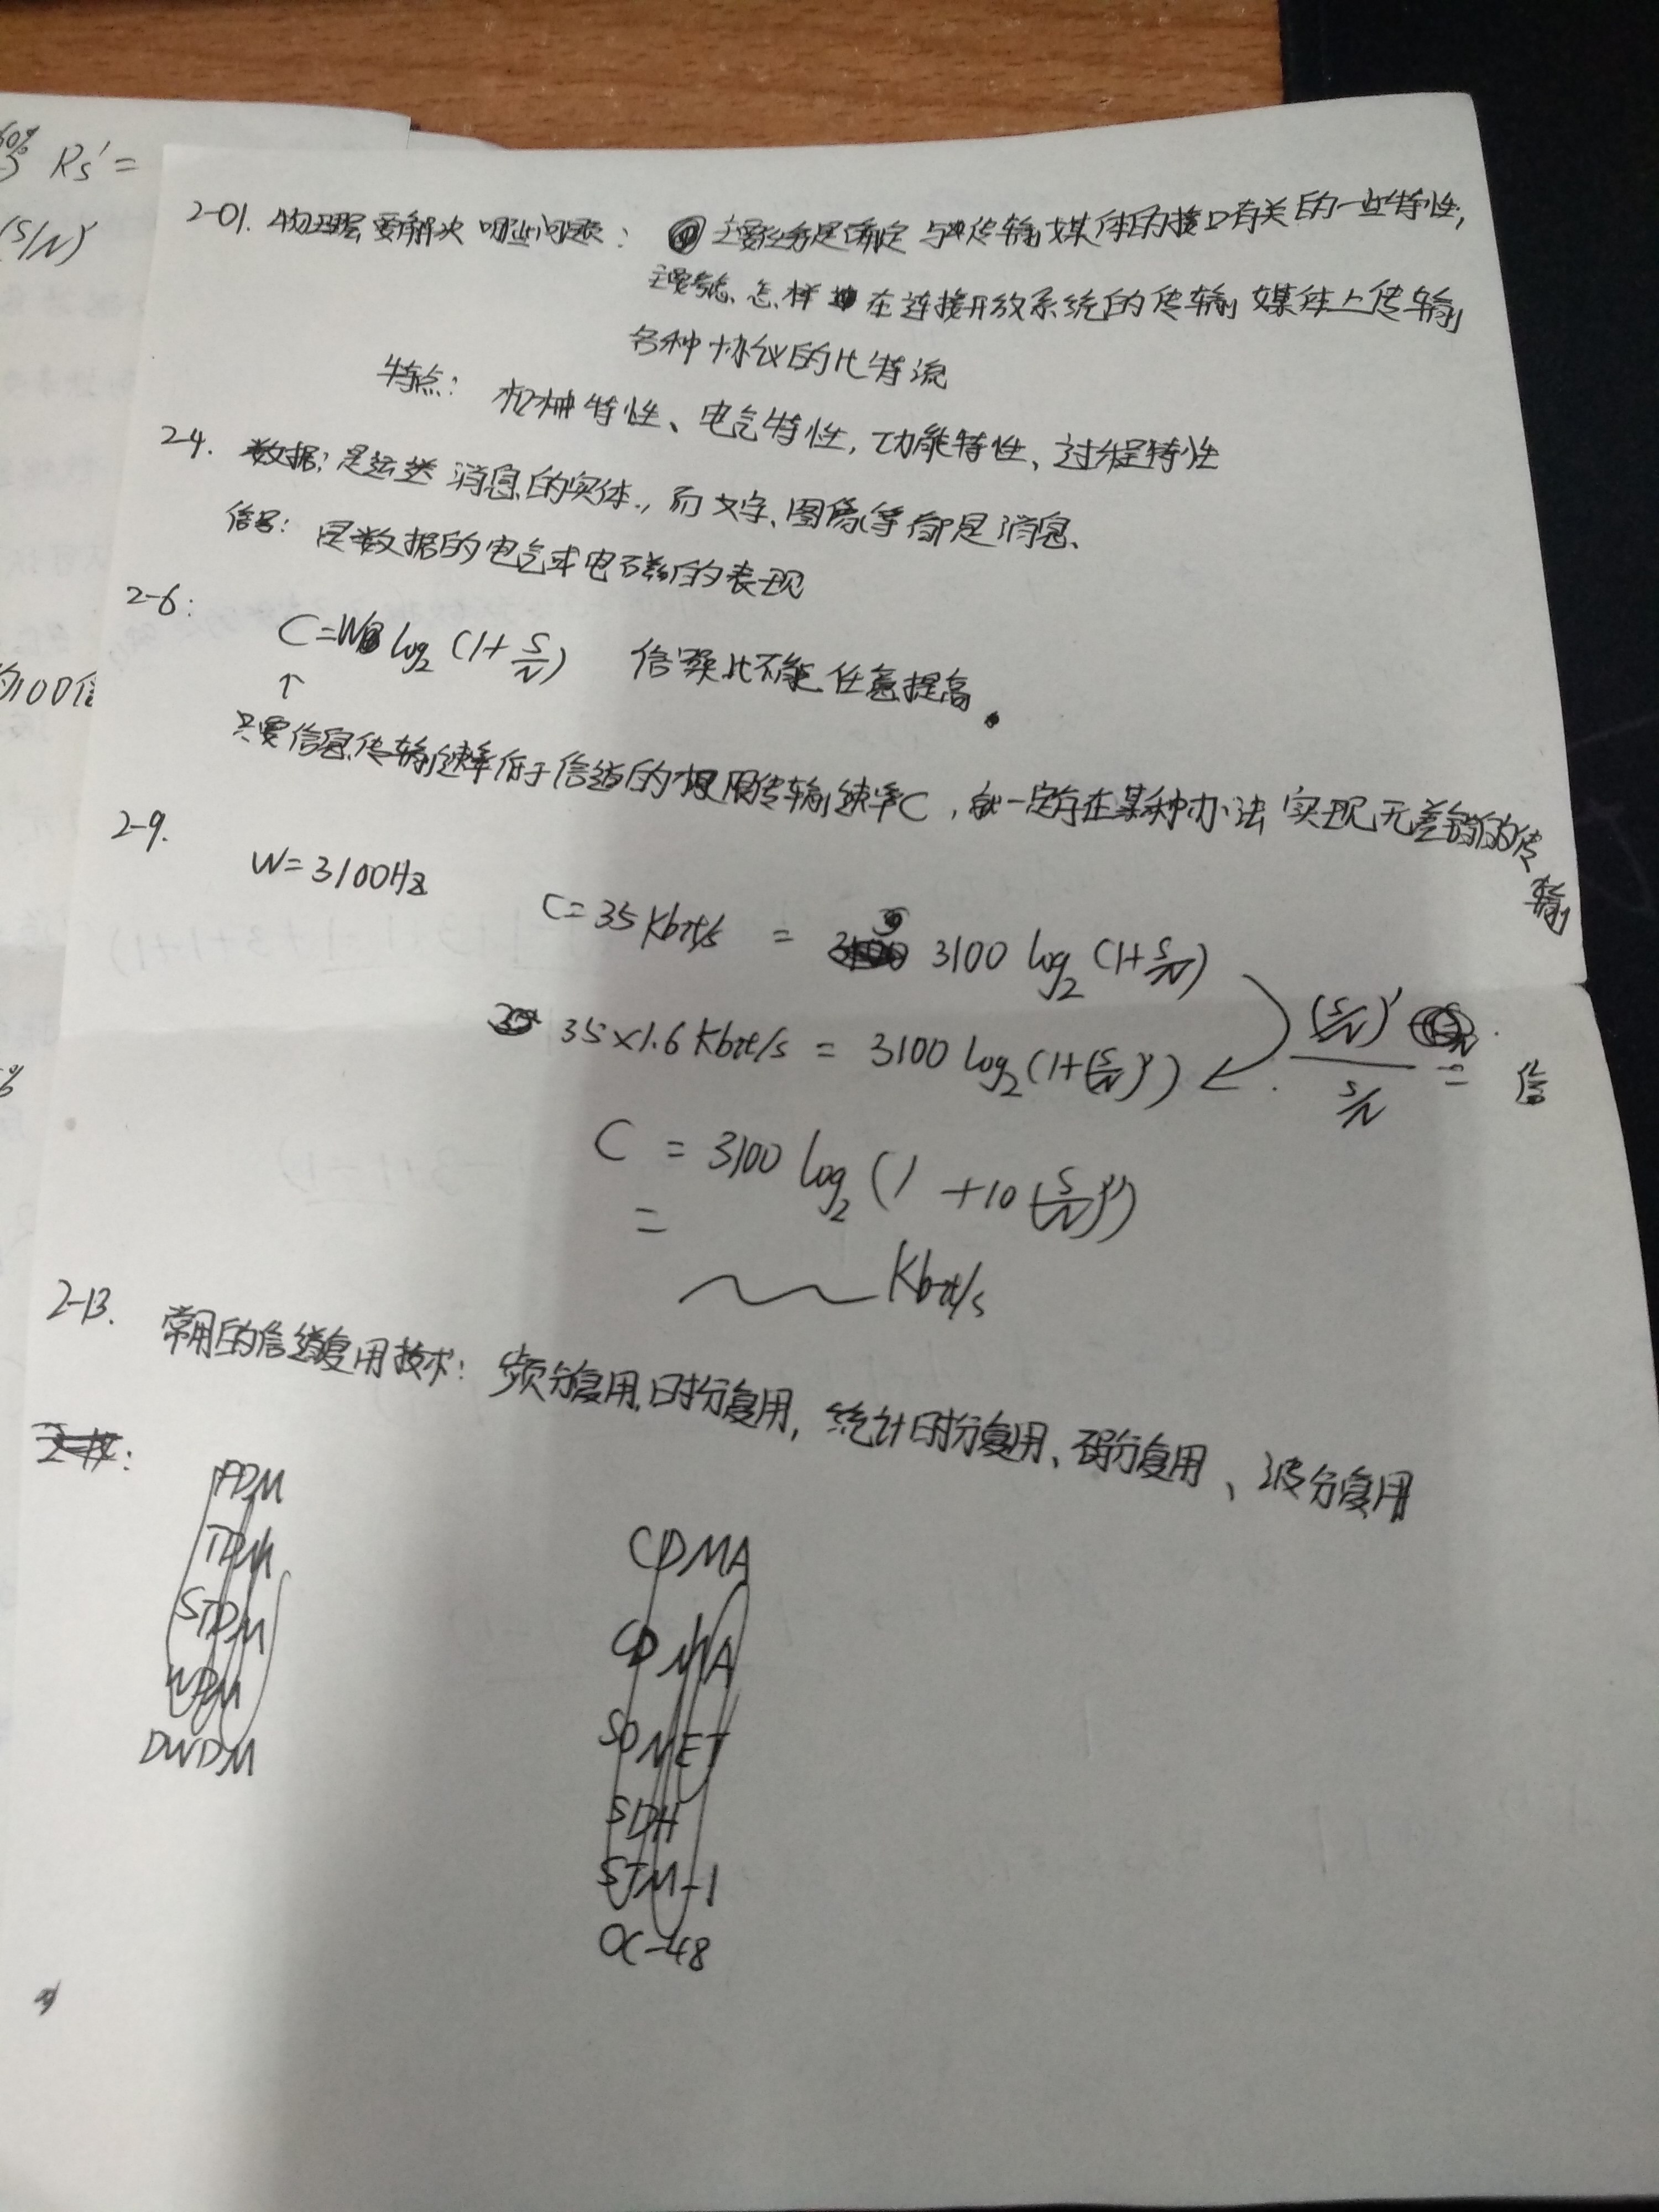 60%
Rs' =
(S/N)'
的100倍
2-01. 物理层要解决哪些问题: 主要任务是确定与传输媒体的接口有关的一些特性,
主要考虑怎样在连接开放系统的传输媒体上传输
各种协议的比特流
特点: 机械特性、电气特性, 功能特性、过程特性
2-4. 数据: 是运送消息的实体., 而文字、图像等都是消息、
信号: 是数据的电气或电磁的表现
2-6:
C=W log₂ (1+ S/N) 信噪比不能任意提高.
↑
只要信息传输速率低于信道的极限传输速率C, 就一定存在某种办法实现无差错的传输
2-9.
W=3100Hz
C=35 Kbit/s = 3100 log₂ (1+ S/N)
35×1.6 Kbit/s = 3100 log₂ (1+(S/N)')
(S/N)' / S/N = 倍
C = 3100 log₂ (1 +10 (S/N)')
=
Kbit/s
2-13. 常用的信道复用技术: 频分复用, 时分复用, 统计时分复用、码分复用、波分复用
FDM
TDM
STDM
WDM
DWDM
CDMA
CDMA
SONET
SDH
STM-1
OC-48